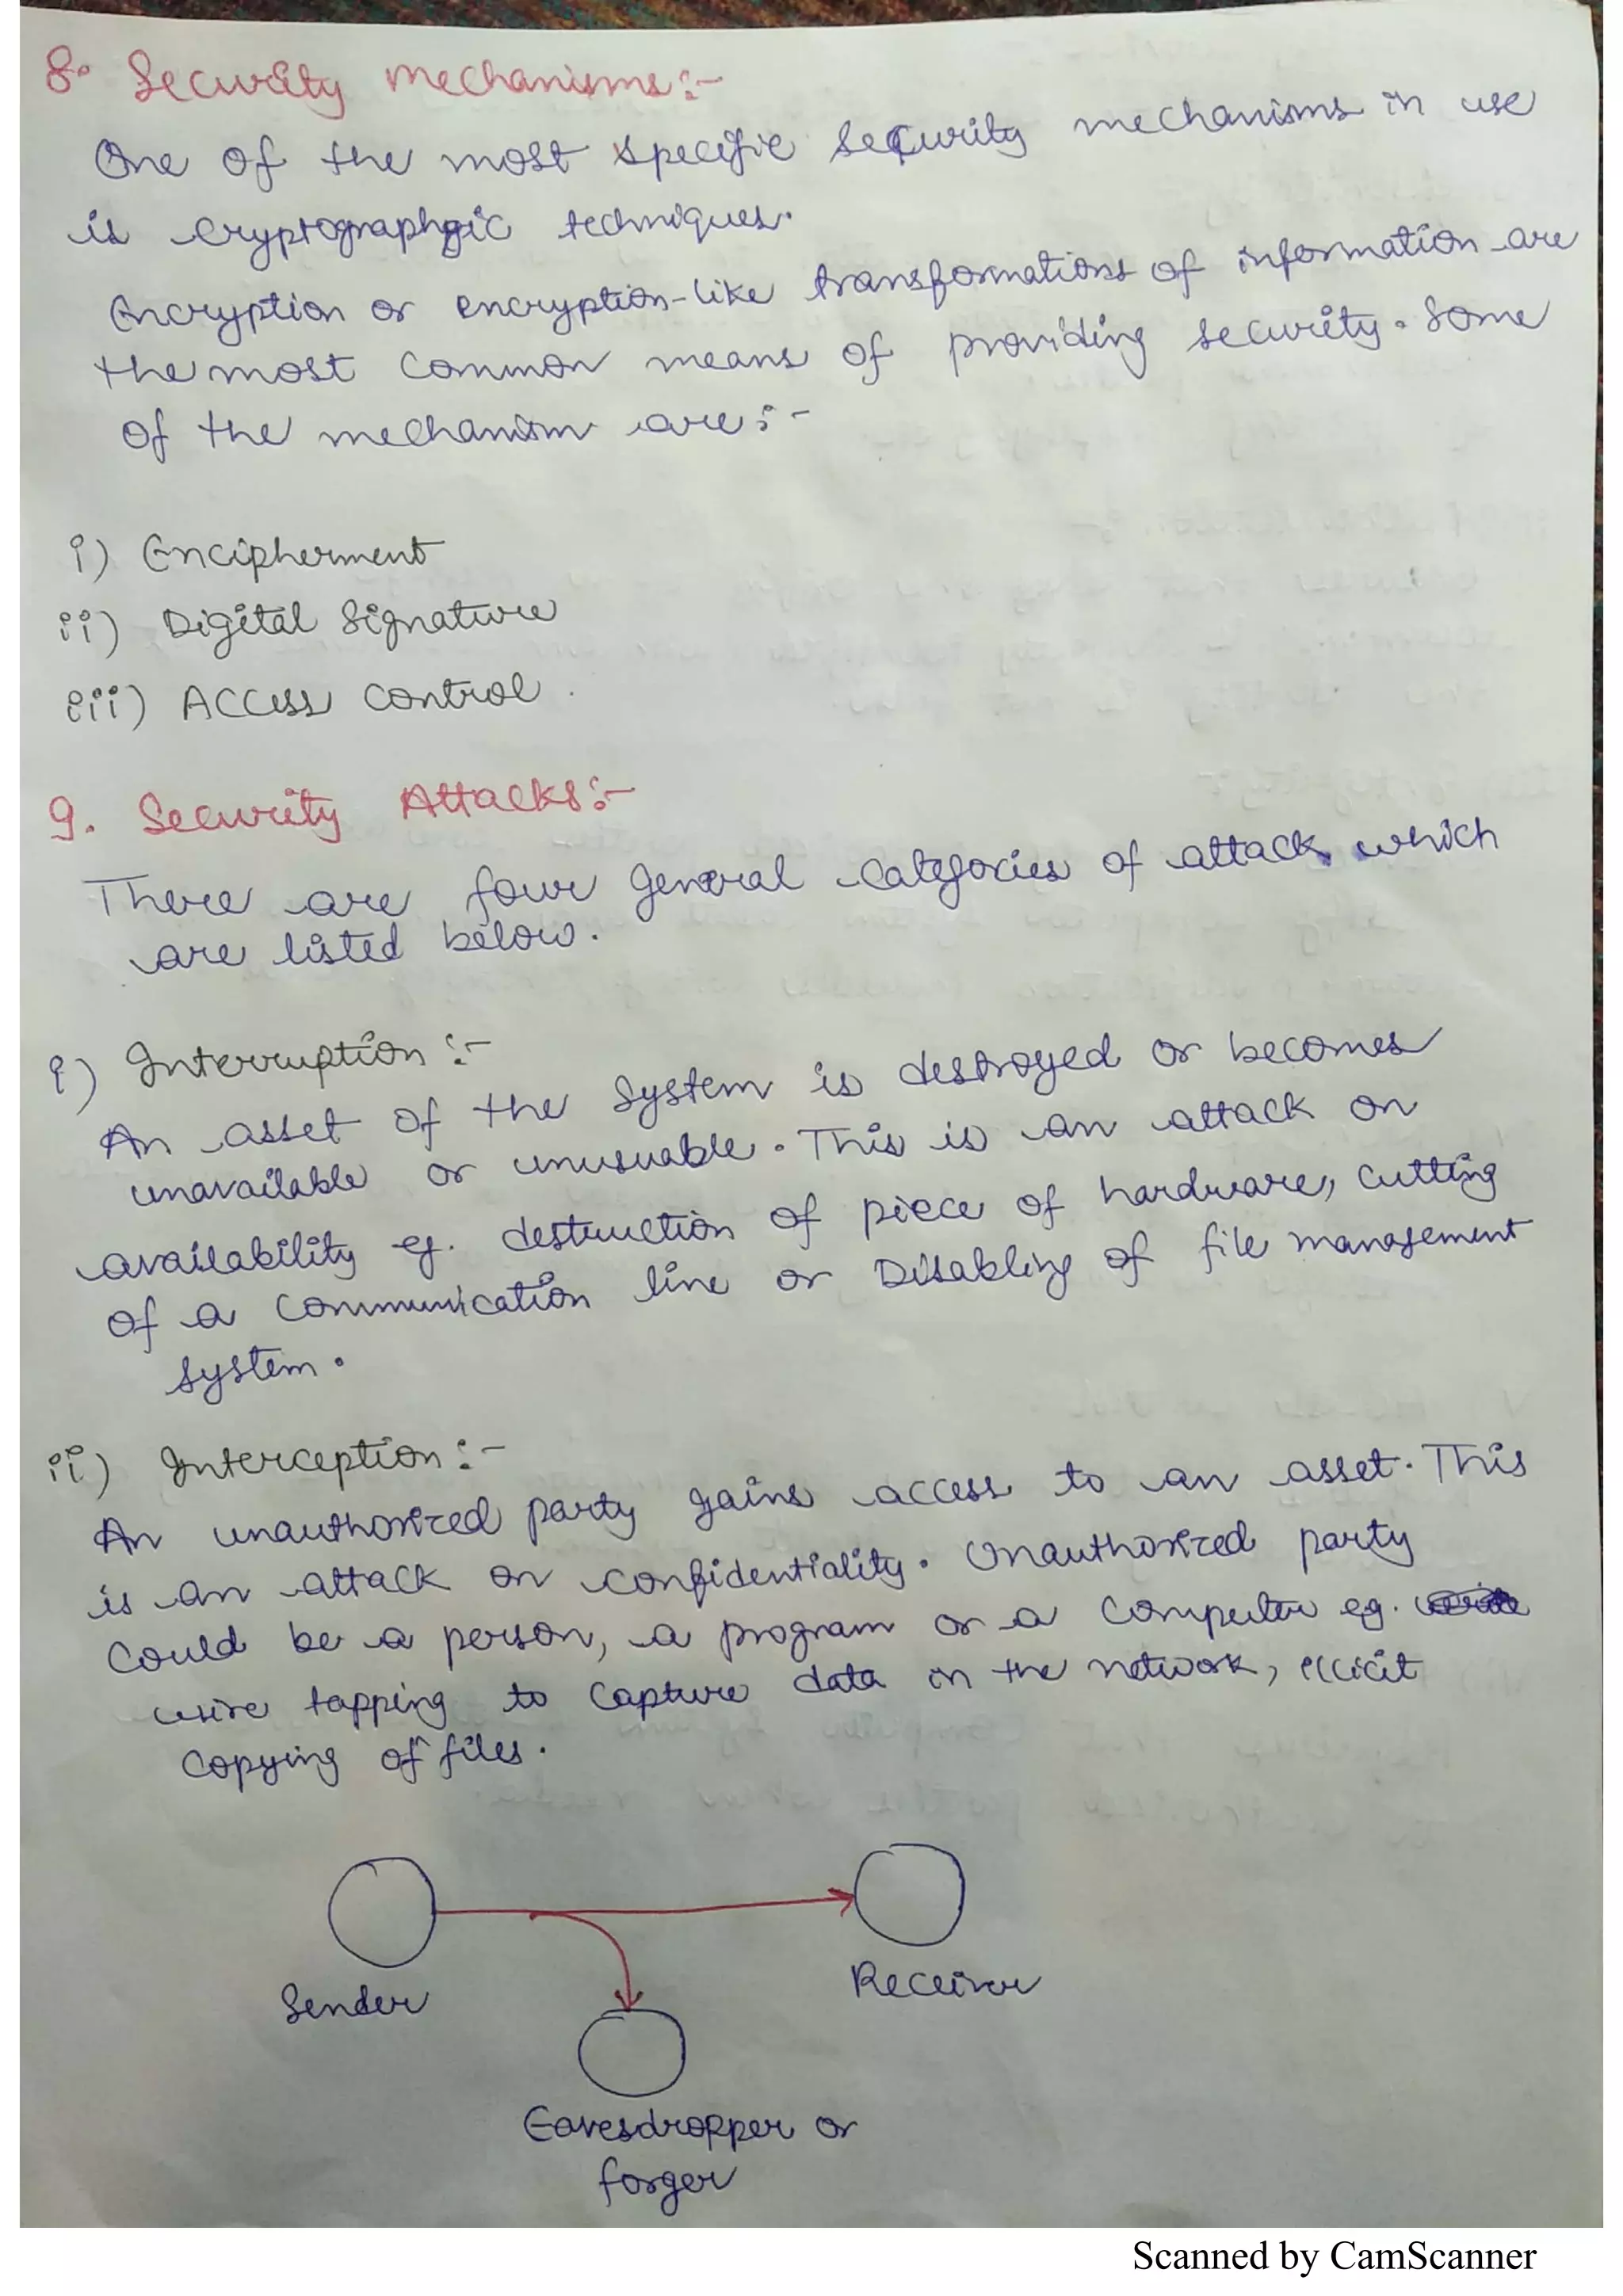 8. Security mechanisms:-
One of the most specific security mechanisms in use
is cryptographic techniques.
Encryption or encryption-like transformations of information are
the most common means of providing security. Some
of the mechanism are:-
i) Encipherment
ii) Digital Signature
iii) Access Control.
9. Security Attacks:-
There are four general categories of attack which
are listed below.
i) Interruption:-
An asset of the system is destroyed or becomes
unavailable or unusuable. This is an attack on
availability eg. destruction of piece of hardware, cutting
of a communication line or Disabling of file management
system.
ii) Interception:-
An unauthorized party gains access to an asset. This
is an attack on confidentiality. Unauthorized party
could be a person, a program or a computer eg.
wire tapping to capture data in the network, illicit
copying of files.
Sender
Receiver
Eavesdropper or
forger
Scanned by CamScanner